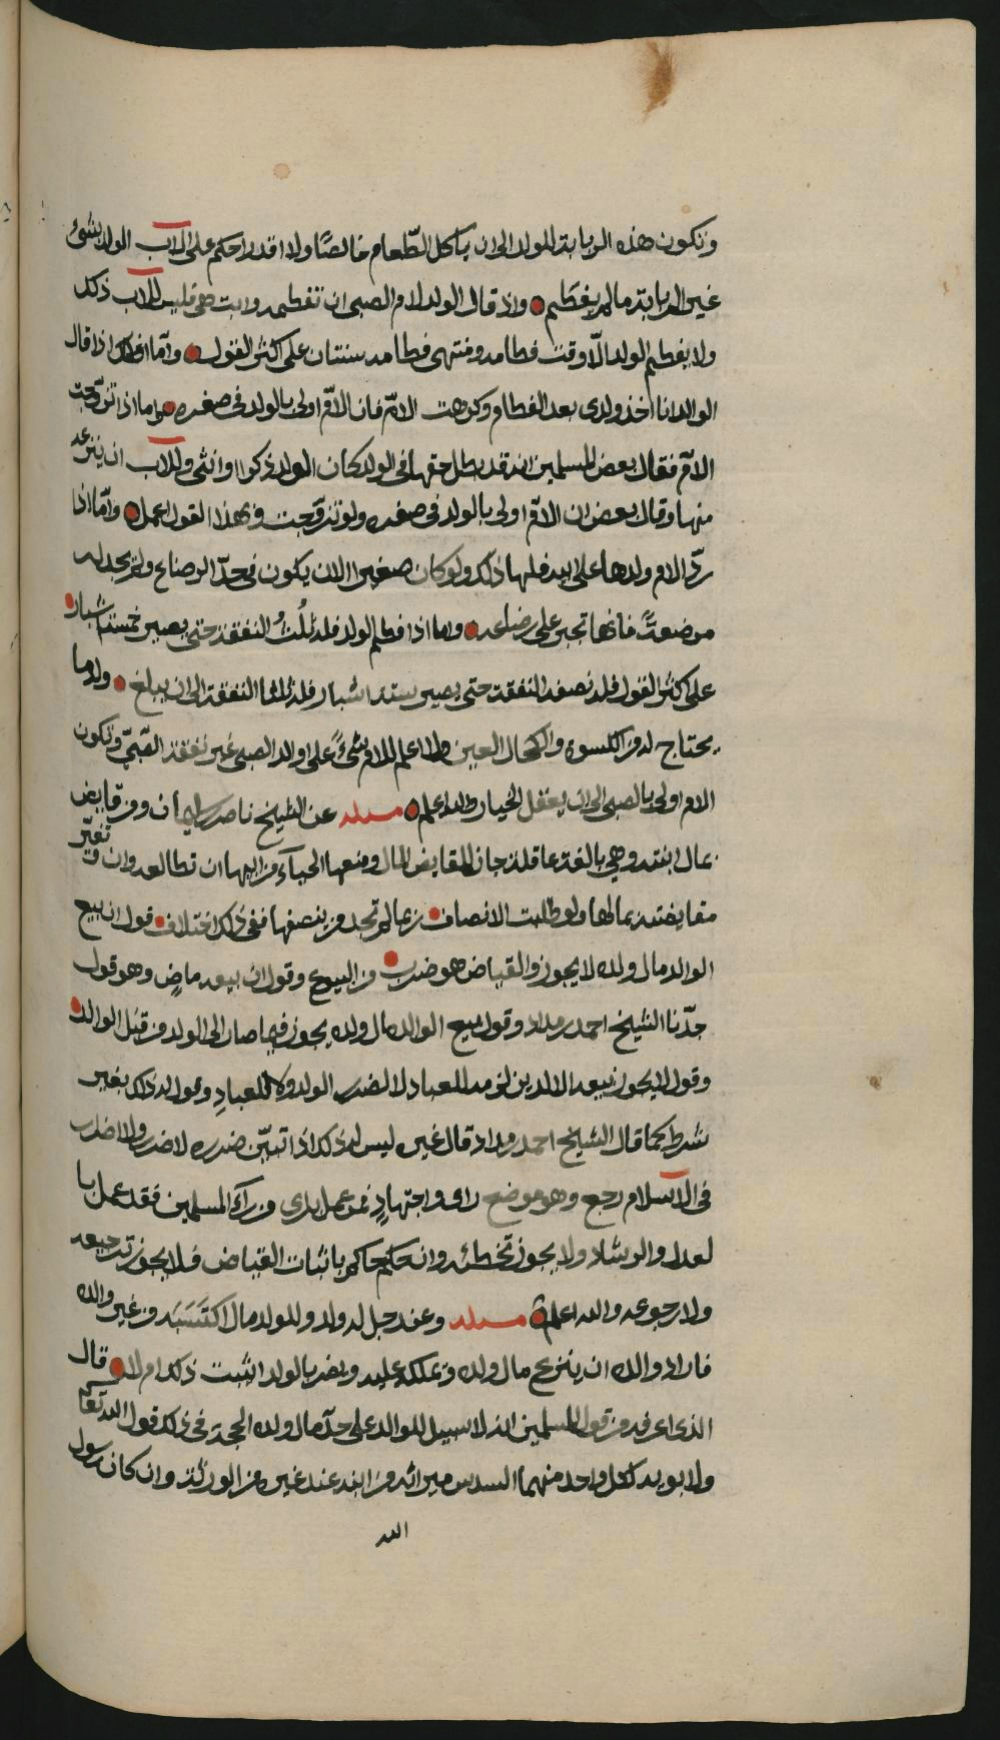 وتكون هذه الربابة للولد الى ان ياكل الطعام خالصًا ولا اقدر احكم على الاب الولد بشئ
غير الربابة مالم يفطم وان قال الولد لام الصبى ان تفطمه وابت هى فليس للاب ذلك
ولا يفطم الولد الّا وقت فطامه ومنتهى فطامه سنتان على اكثر القول وامّا اذا قال
الوالد انا اخذ ولدى بعد الفطام وكرهت الامّ فان الامّ اولى بالولد فى صغره واما اذا تزوّجت
الامّ فقال بعض المسلمين انه قد بطل حقها فى الولد كان الولد ذكرا او انثى وللاب ان ينزعه
منها وقال بعض ان الامّ اولى بالولد فى صغره ولو تزوّجت وبهذا القول اعمل وامّا اذا
ردّ الام ولدها على ابيه فلها ذلك ولو كان صغيرا الا ان يكون فى حدّ الرضاع ولم يجد له
مرضعةً فانها تجبر على رضاعه واما اذا فطم الولد فله ثلُثُ النفقة حتى يصير خمسة اشبار
على اكثر القول فله نصف النفقة حتى يصير ستة اشبار فله ثلثا النفقة الى ان يبلغ وله ما
يحتاج له من الكسوه والكحال العين ولا اعلم للام شئً على والد الصبى غير نفقة الصّبىّ وتكون
الام اولى بالصبى الى ان يعقل الخيار والله اعلم مسئله عن الشيخ ناصر بن ومن قايض
بمال ابنته وهي بالغة عاقلة جاز المقايض المال ومنعها الحيآء من ابيها ان تطالعه وان تغيّر
مقايضته بمالها ولو طلبت الانصاف ربما لم تجد من ينصفها ففى ذلك اختلاف قول ان بيع
الوالد مال ولده لا يجوز والقياض هو ضرب من البيوع وقول ان بيعه ماضٍ وهو قول
جدّنا الشيخ احمد بن مداد وقول بيع الوالد مال ولده يجوز فيما صار الى الولد من قبل الوالد
وقول لا يجوز بيعه الا لدين لزمه للعباد لا لضرر الولد وكا للعبادِ وللوالد ذلك بغير
شرط كما قال الشيخ احمد بن مداد قال غيره ليس له ذلك اذا تبيّن ضرره لا ضرر ولا اضرار
فى الاسلام رجع وهو موضع راى واجتهادٍ فمن عمل براى من رآء المسلمين فقد عمل با
لعدل والرشاد ولا يجوز تخطئه وان حكم حاكم باثبات القياض فلا يجوز ترجيعه
ولا رجوعه والله اعلم مسئله وعن رجل له ولد وللولد مال اكتسبه من غير والده
فاراد والده ان ينزع مال ولده وتملكه عليه ويضر بالولد ايثبت ذلك ام لا قال
الذى اعرفه من قول المسلمين انه لا سبيل للوالد على حدّ مال ولده الحجة فى ذلك قول الله تعالى
ولابويه لكل واحد منهما السدس ميراثه من ابنه عند غيره من الورثة وان كان رسول
الله